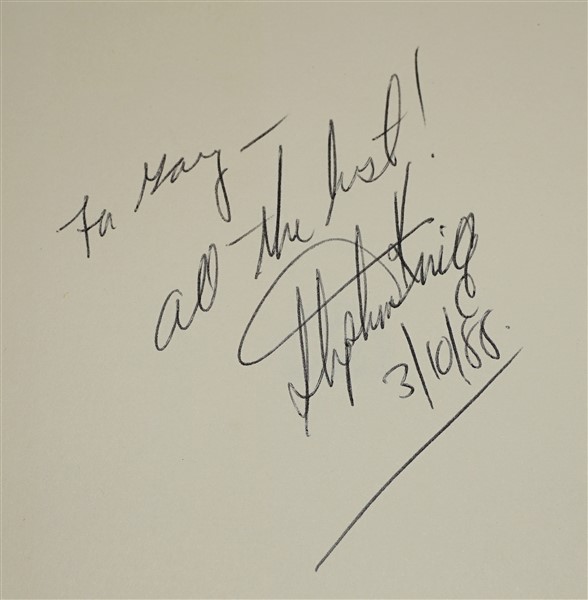 For Gary —
all the best!
Stephen King
3/10/88.